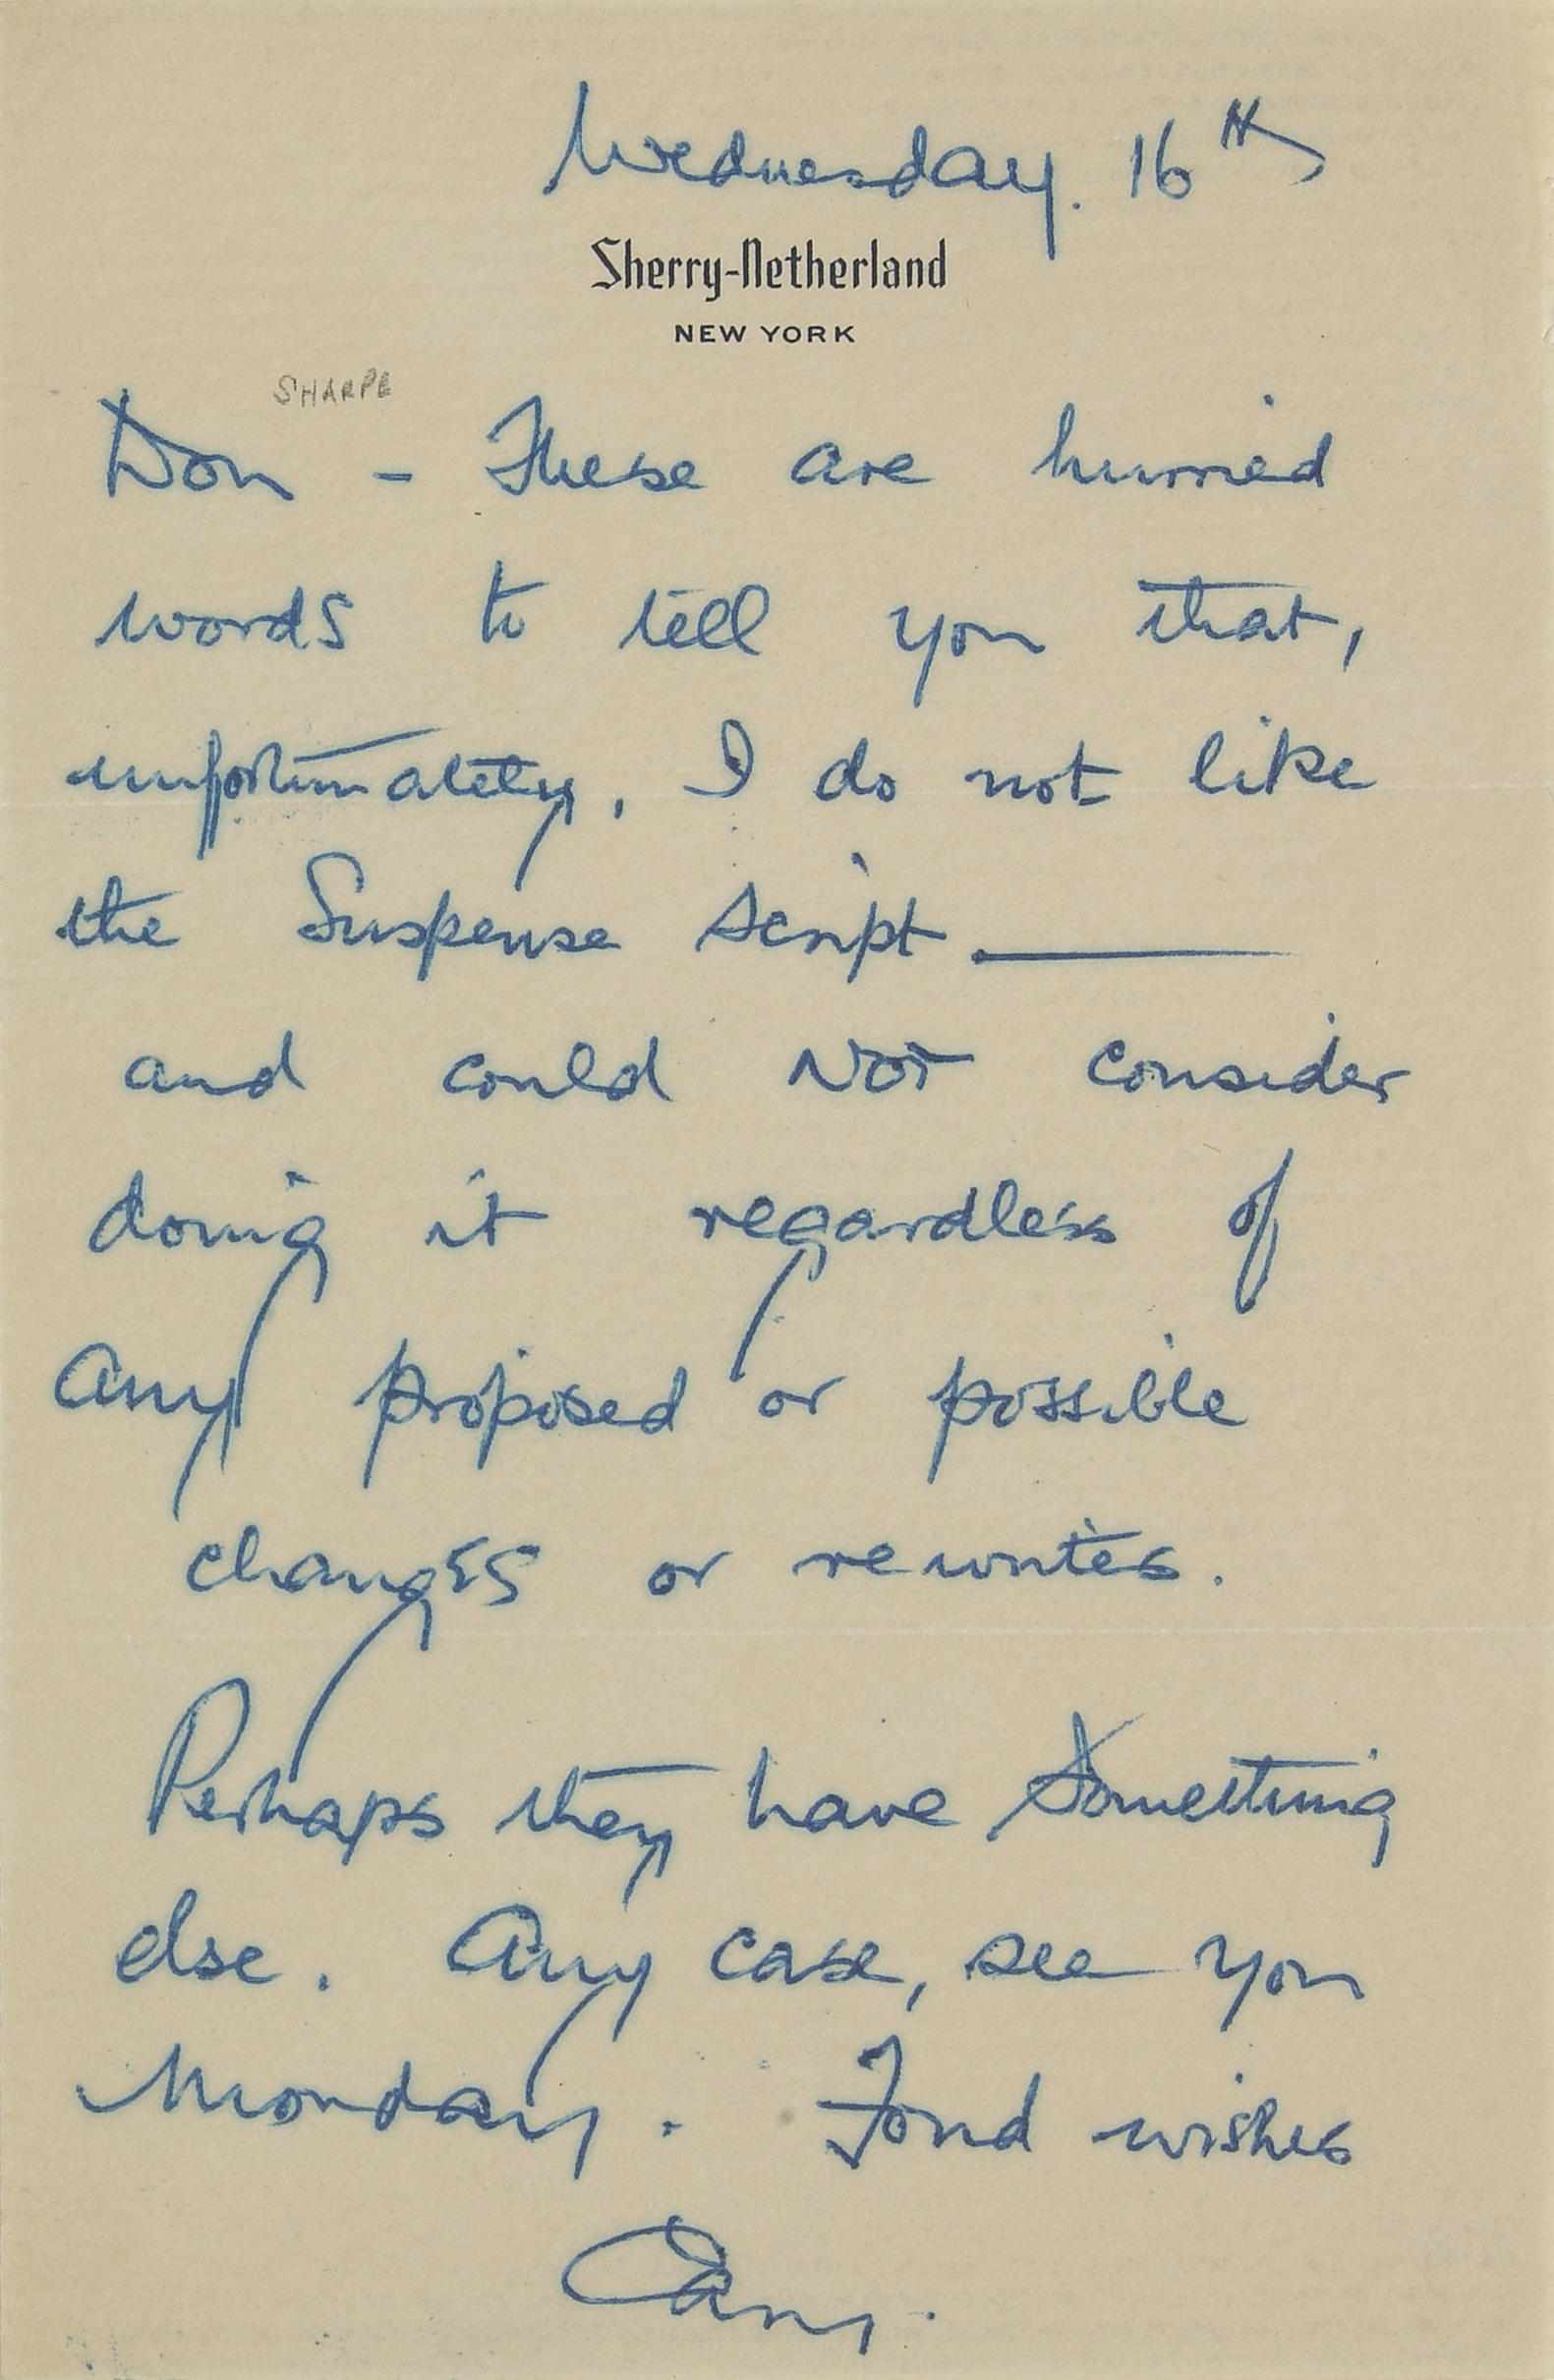 Wednesday. 16th
Sherry-Netherland
NEW YORK
SHARPE
Don - These are hurried
words to tell you that,
unfortunately, I do not like
the Suspense script ———
and could NOT consider
doing it regardless of
any proposed or possible
changes or rewrites.
Perhaps they have something
else. Any case, see you
Monday. Fond wishes
Cary.